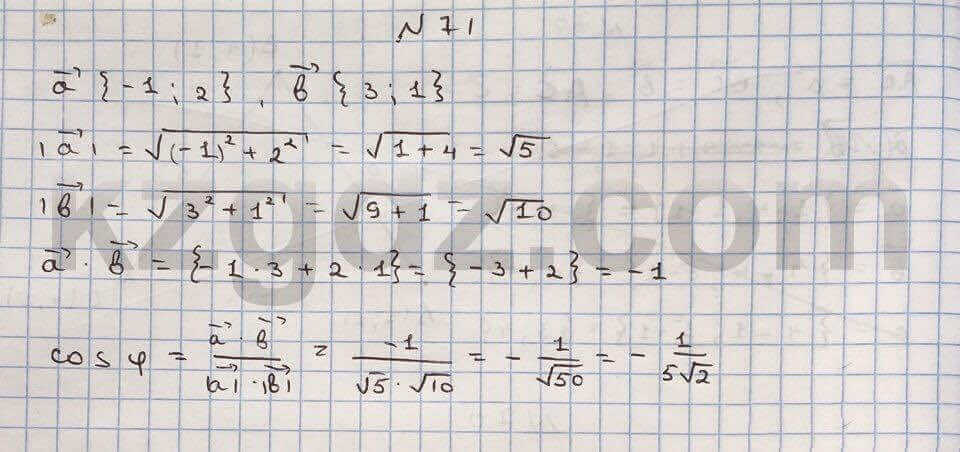 N 71
a⃗ {-1; 2}, b⃗ {3; 1}
|a⃗| = √((-1)² + 2²) = √(1+4) = √5
|b⃗| = √(3² + 1²) = √(9+1) = √10
a⃗ · b⃗ = {-1·3 + 2·1} = {-3+2} = -1
cos φ = (a⃗ · b⃗)/(|a⃗| · |b⃗|) = -1/(√5 · √10) = - 1/√50 = - 1/(5√2)
kzgdz.com